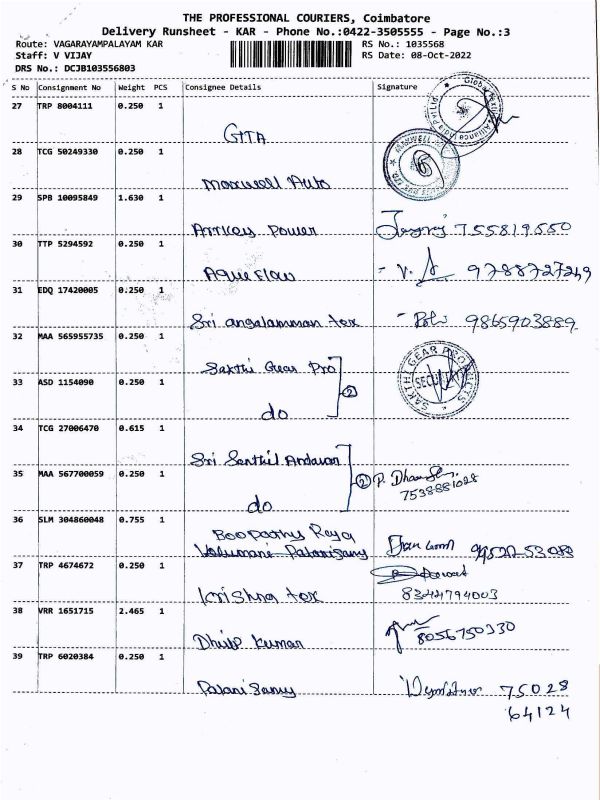 THE PROFESSIONAL COURIERS, Coimbatore
Delivery Runsheet - KAR - Phone No.:0422-3505555 - Page No.:3
Route: VAGARAYAMPALAYAM KAR RS No.: 1035568
Staff: V VIJAY RS Date: 08-Oct-2022
DRS No.: DCJB103556803
S No Consignment No Weight PCS Consignee Details Signature
27 TRP 8004111 0.250 1
GTA
28 TCG 50249330 0.250 1
Maxwell Auto
29 SPB 10095849 1.630 1
Power 755819550
30 TTP 5294592 0.250 1
Aqua Flow - V. 9788727249
31 EDQ 17420005 0.250 1
Sri angalamman tex 9865903889
32 MAA 565955735 0.250 1
Sakthi Gear Pro
SAKTHI GEAR PRODUCTS
SECURITY
33 ASD 1154090 0.250 1
do 2
34 TCG 27006470 0.615 1
Sri Senthil Andavan
35 MAA 567700059 0.250 1
do 2 P. 7538881028
36 SLM 304860048 0.755 1
Boopathy Raya
Palanisamy
37 TRP 4674672 0.250 1
Krishna tex 8344794003
38 VRR 1651715 2.465 1
Dhilip Kumar 8056750330
39 TRP 6020384 0.250 1
Palanisamy 75028
64124